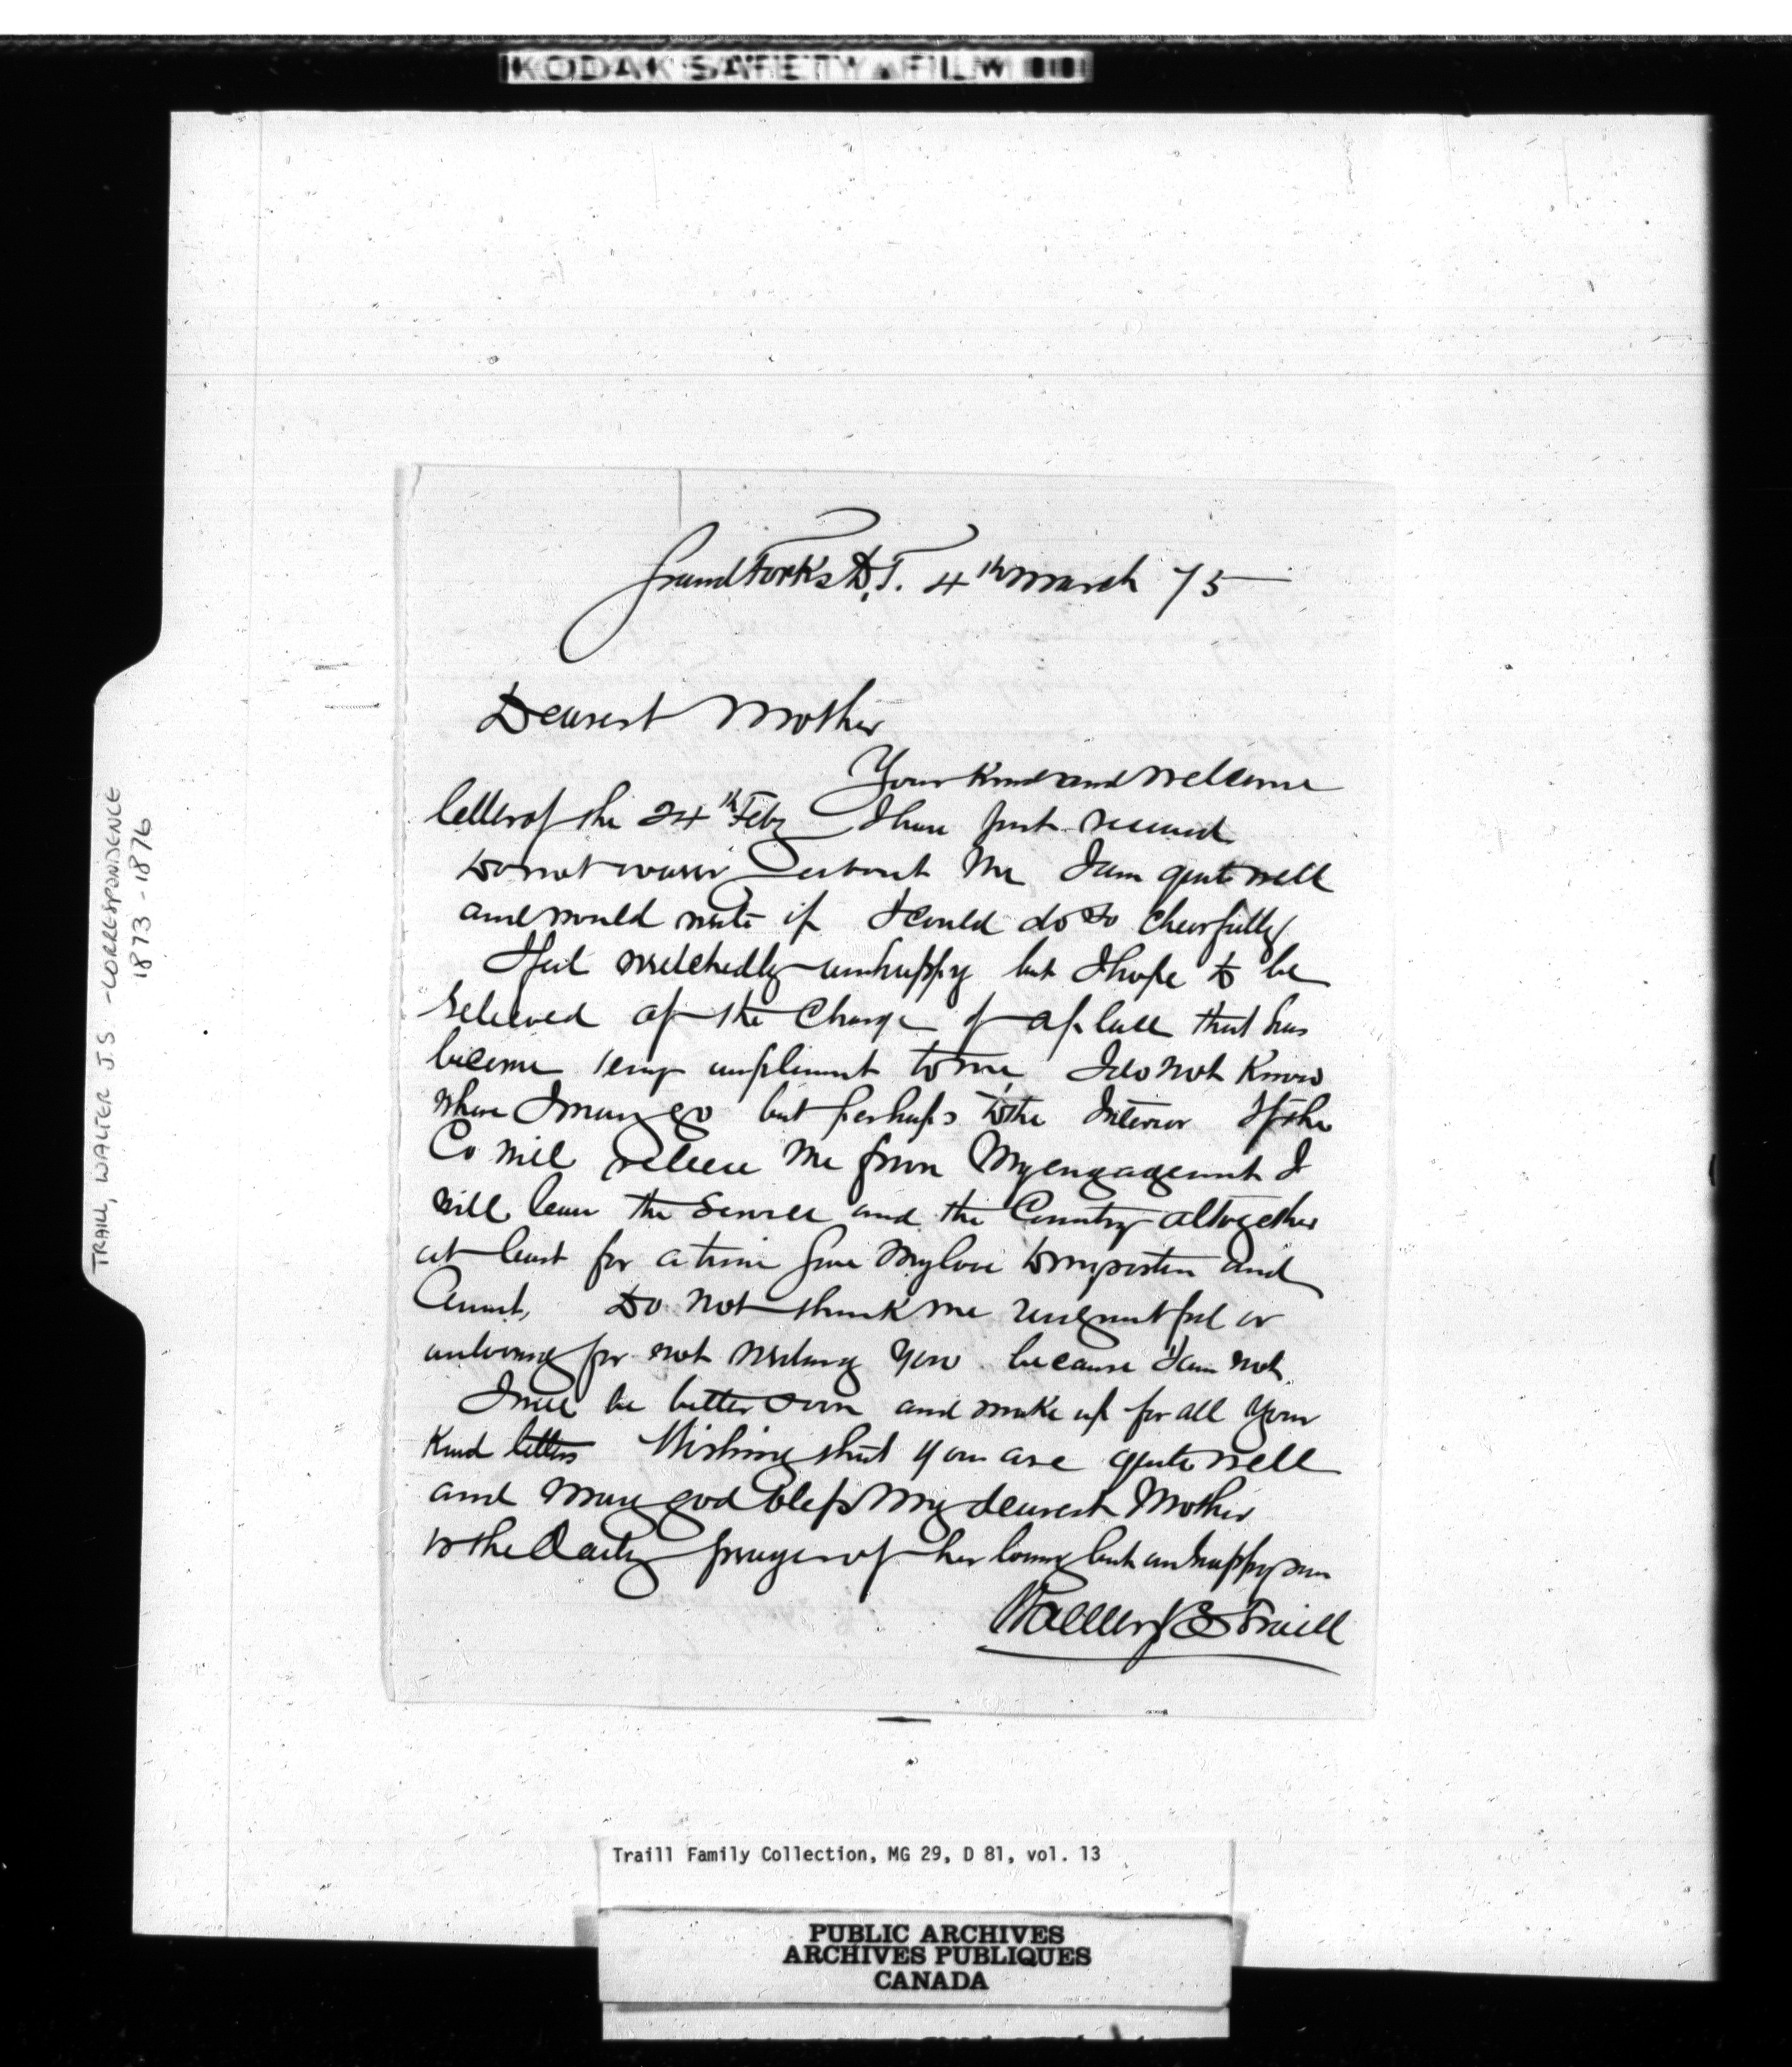 KODAK SAFETY FILM
TRAILL, WALTER J.S. - CORRESPONDENCE
1873-1876
Grand Forks D.T. 4th March 75
Dearest Mother
Your kind and welcome
letter of the 24th Feby I have just received
Do not worry about me I am quite well
and would write if I could do so cheerfully
I feel wretchedly unhappy but I hope to be
relieved of the charge of a place that has
become very unpleasant to me I do not know
where I may go but perhaps to the Interior If the
Co will release me from my engagement I
will leave the Service and the Country altogether
at least for a time Give my love to my sister and
Aunt, Do not think me ungrateful or
unloving for not writing you because I am not.
I will be better soon and make up for all your
Kind letters Wishing that you are quite well
and may god bless my dearest Mother
is the Daily prayer of her loving but unhappy son
Walter J S Traill
Traill Family Collection, MG 29, D 81, vol. 13
PUBLIC ARCHIVES
ARCHIVES PUBLIQUES
CANADA